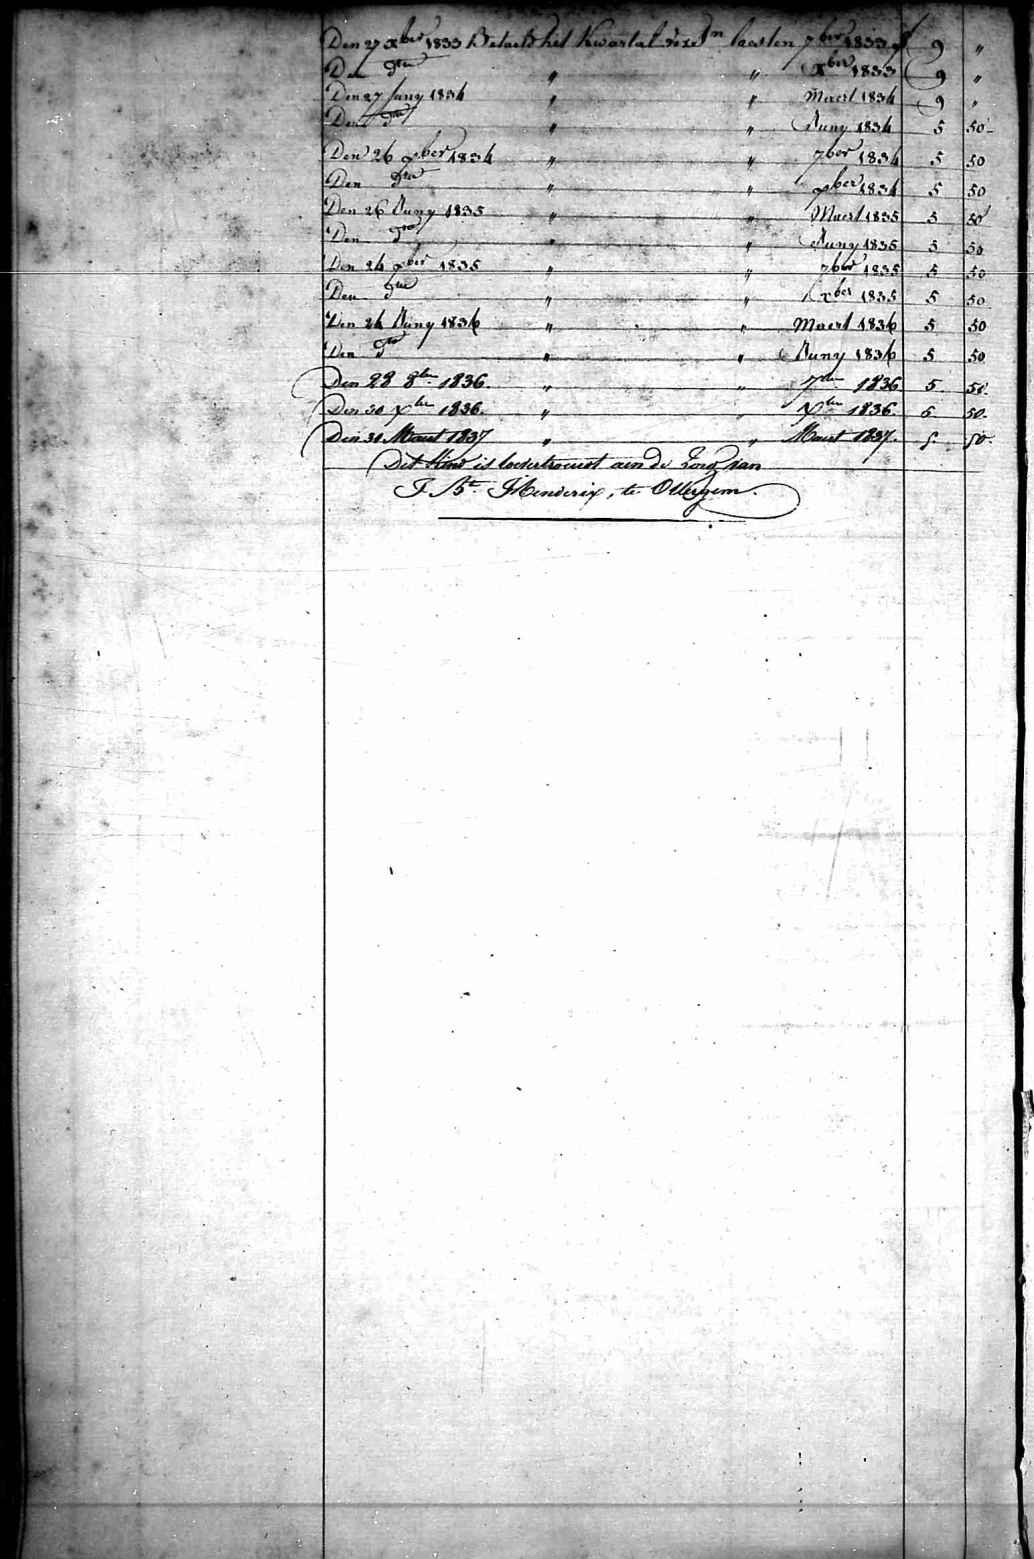 Den 27 xber 1833 Betaelt het Kwartal vers. in laesten 7ber 1833 f 9 "
Den dto " " xber 1833 9 "
Den 27 Juny 1834 " " Maert 1834 9 "
Den dto " " Juny 1834 5 50
Den 26 xber 1834 " " 7ber 1834 5 50
Den dto " " xber 1834 5 50
Den 26 Juny 1835 " " Maert 1835 5 50
Den dto " " Juny 1835 5 50
Den 24 xber 1835 " " 7ber 1835 5 50
Den dto " " xber 1835 5 50
Den 24 Juny 1836 " " Maert 1836 5 50
Den dto " " Juny 1836 5 50
Den 28 8ber 1836. " " 7ber 1836 5 50.
Den 30 Xber 1836. " " Xber 1836. 5 50.
Den 31 Maert 1837 " " Maert 1837. 5 50.
Dit Kind is toevertrouwt aen de Zorg van
J. Bte Henderix, te Ottergem.